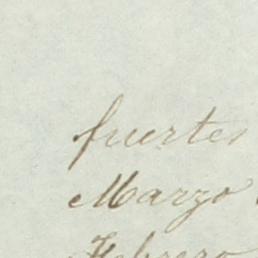 fuertes
Marzo
Febrero